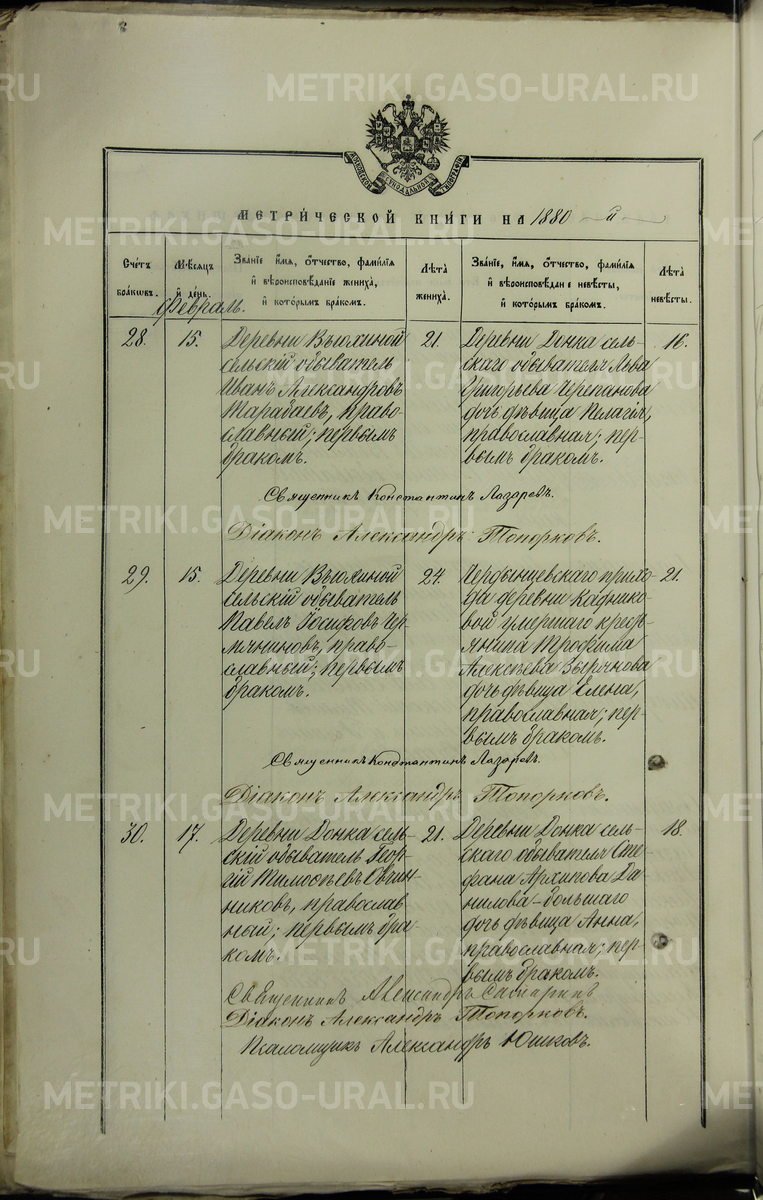 METRIKI.GASO-URAL.RU
МОСКОВСКОЙ СѴНОДАЛЬНОЙ ТИПОГРАФІИ
МЕТРИ́ЧЕСКОЙ КНИ́ГИ НА 1880 й
Сче́тъ бра́кѡвъ.
Мѣ́сѧцъ и҆ де́нь.
Зва́нїе и҆́мѧ, ѻ҆́тчество, фами́лїѧ и҆ вѣроисповѣ́данїе жениха̀, и҆ кото́рымъ бра́комъ.
Лѣ́та жениха̀.
Зва́нїе, и҆́мѧ, ѻ҆́тчество, фами́лїѧ и҆ вѣроисповѣ́данїе невѣ́сты, и҆ кото́рымъ бра́комъ.
Лѣ́та невѣ́сты.
Февраль.
28.
15.
Деревни Вьюхиной
сельскій обыватель
Иванъ Александровъ
Тарабаевъ, право-
славный; первымъ
бракомъ.
21.
Деревни Донка сель-
скаго обывателя Льва
Григорьева Черепанова
дочь дѣвица Пелагія,
православная; пер-
вымъ бракомъ.
16.
Священникъ Константинъ Лазаревъ.
Діаконъ Александръ Топорковъ.
29.
15.
Деревни Вьюхиной
сельскій обыватель
Павелъ Іосифовъ
право-
славный; первымъ
бракомъ.
24.
прихо-
да деревни Каднико-
вой умершаго кресть-
янина Трофима
Алексѣева Зырянова
дочь дѣвица Елена,
православная; пер-
вымъ бракомъ.
21.
Священникъ Константинъ Лазаревъ.
Діаконъ Александръ Топорковъ.
30.
17.
Деревни Донка сель-
скій обыватель Геор-
гій Тимоѳеевъ Овчин-
никовъ, православ
ный; первымъ бра
комъ.
21.
Деревни Донка сель-
скаго обывателя Сте-
фана Архипова Да-
нилова-большаго
дочь дѣвица Анна,
православная; пер-
вымъ бракомъ.
18.
Священникъ Александръ
Діаконъ Александръ Топорковъ.
Псаломщикъ Александръ Юшковъ.